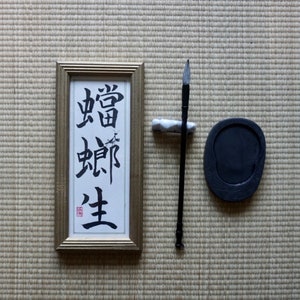 蟷螂生